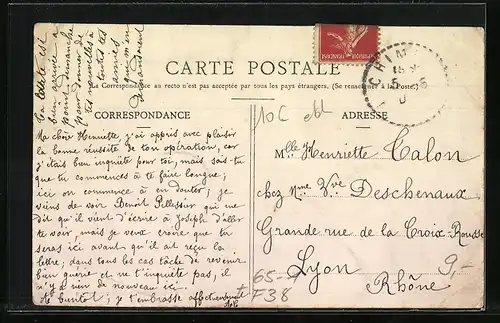 CARTE POSTALE
La Correspondance au recto n'est pas acceptée par tous les pays étrangers. (Se renseigner à la Poste.)
CORRESPONDANCE
ADRESSE
La Colette est
bien arrivée à
point dimanche
pour donner de
tes nouvelles à
toutes tes
amies
qui m'en
demandaient
Ma chère Henriette, j'ai appris avec plaisir
la bonne réussite de ton opération, car
j'étais bien inquiète pour toi, mais sais-tu
que tu commences à te faire longue;
ici on commence à en douter; je
viens de voir Benoît Pellissier qui me
dit qu'il vient d'écrire à Joseph d'aller
te voir, mais je veux croire que tu
seras ici avant qu'il ait reçu la
lettre; dans tous les cas tâche de revenir
bien guérie et ne t'inquiète pas, il
n'y a rien de nouveau ici.
à bientôt; je t'embrasse affectueusement
10c
Mlle Henriette Calon
chez Mme Vve Deschenaux
Grande rue de la Croix-Rousse
Lyon
Rhône
9,-
65-
F38
CHIM
15
5-6
0